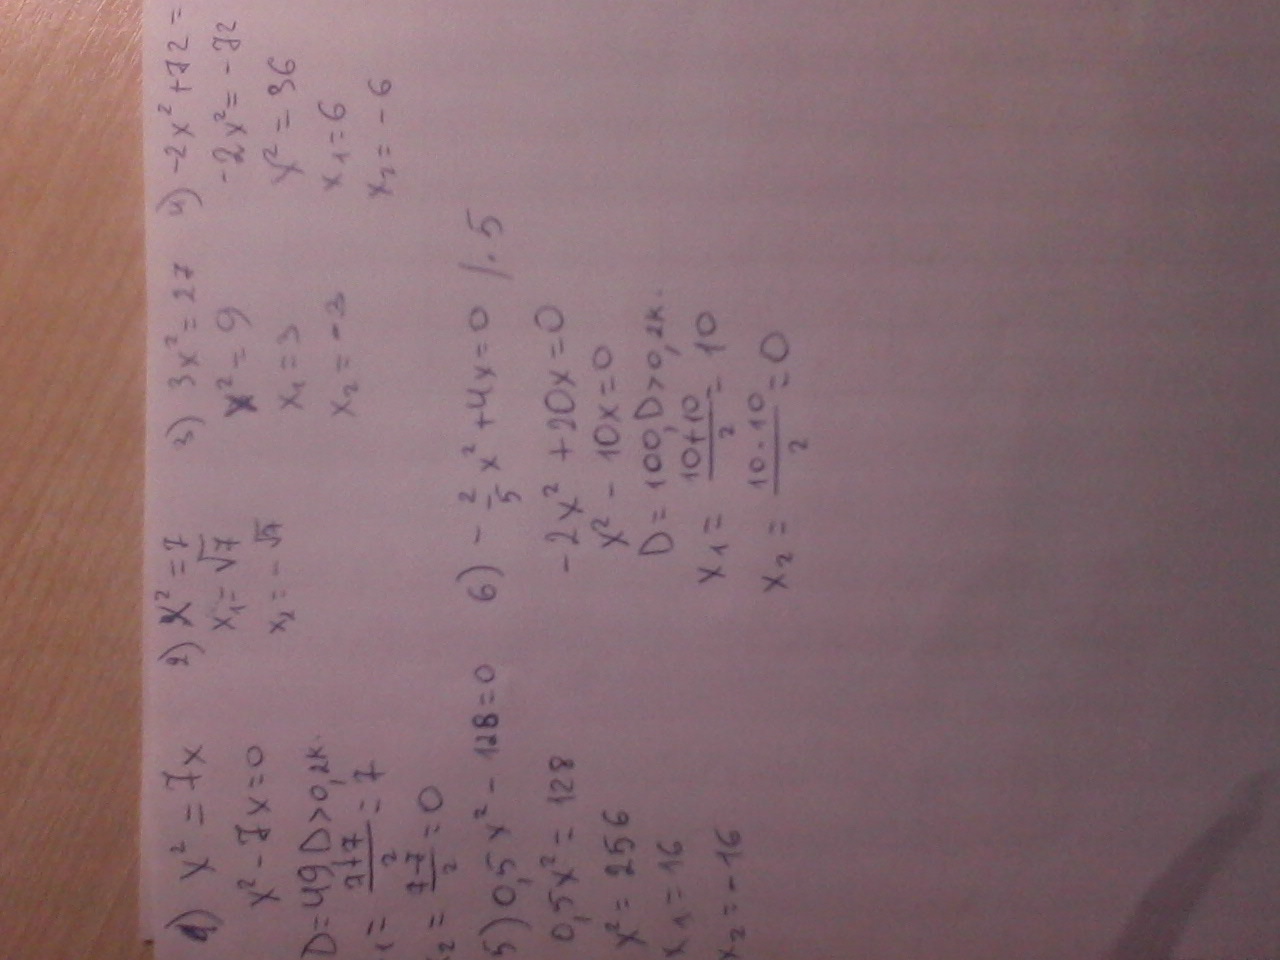 1) x² = 7x
x² - 7x = 0
D = 49, D > 0, 2к.
x₁ = (7+7)/2 = 7
x₂ = (7-7)/2 = 0
2) x² = 7
x₁ = √7
x₂ = -√7
3) 3x² = 27
x² = 9
x₁ = 3
x₂ = -3
4) -2x² + 72 =
-2x² = -72
x² = 36
x₁ = 6
x₂ = -6
5) 0,5x² - 128 = 0
0,5x² = 128
x² = 256
x₁ = 16
x₂ = -16
6) -2/5 x² + 4x = 0 /·5
-2x² + 20x = 0
x² - 10x = 0
D = 100, D > 0, 2к.
x₁ = (10+10)/2 = 10
x₂ = (10-10)/2 = 0